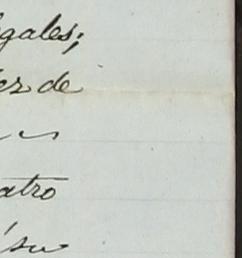 gales;
ez de
atro
su